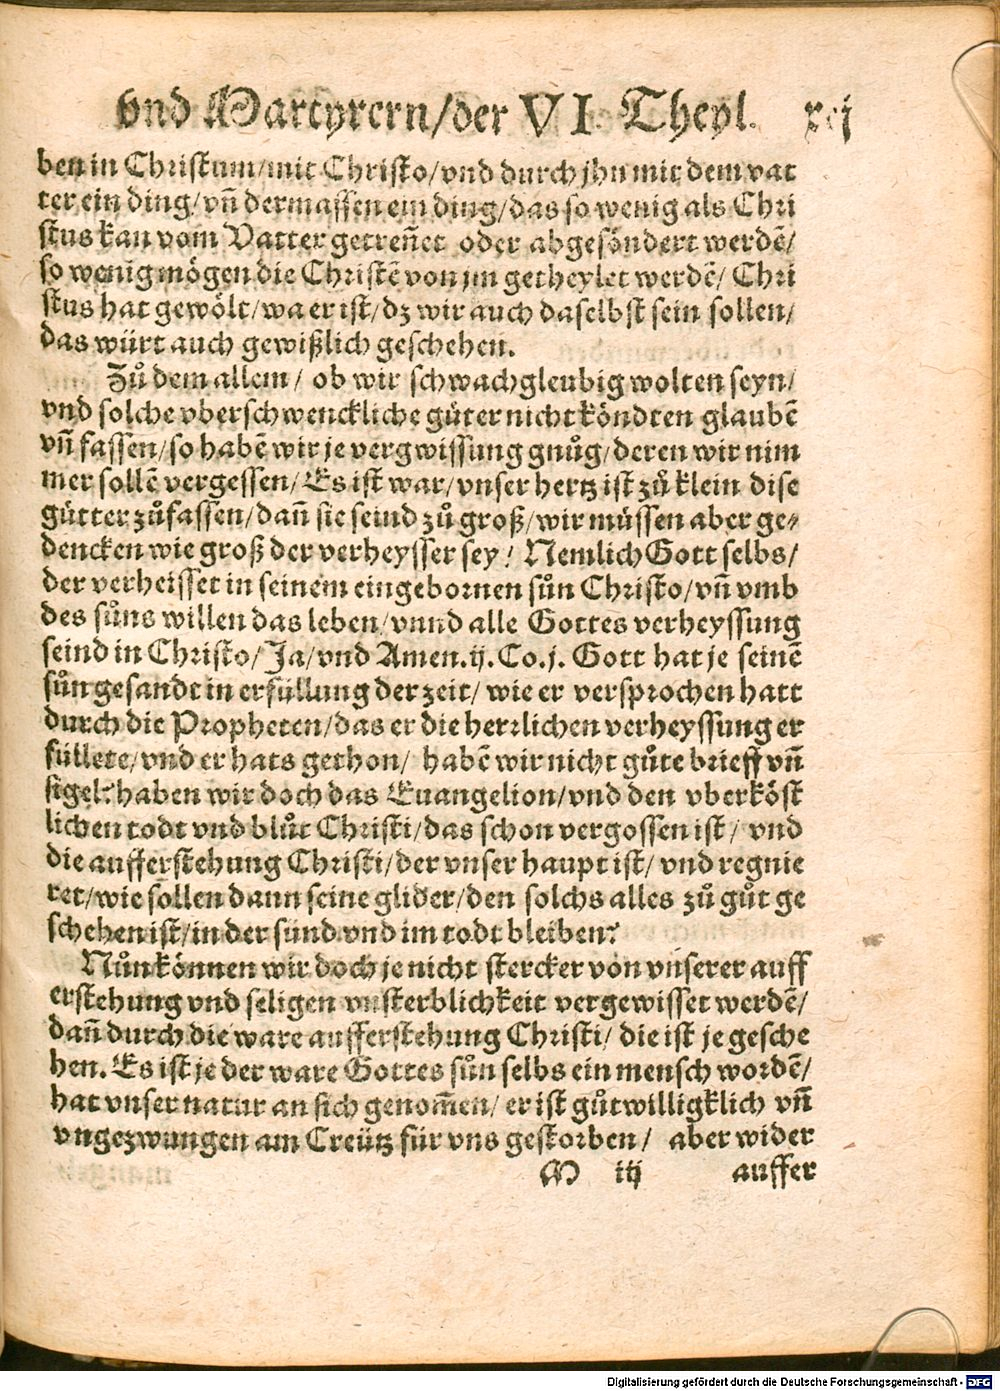 vnd Martyrern/der VI. Theyl. xcj
ben in Christum/mit Christo/vnd durch jhn mit dem vat
ter ein ding/vñ dermassen ein ding/das so wenig als Chri
stus kan vom Vatter getreñet oder abgesöndert werdẽ/
so wenig mögen die Christẽ von jm getheylet werdẽ/ Chri
stus hat gewölt/wa er ist/dz wir auch daselbst sein sollen/
das würt auch gewißlich geschehen.
Zů dem allem/ ob wir schwachgleubig wolten seyn/
vnd solche vberschwenckliche gůter nicht köndten glaubẽ
vñ fassen/so habẽ wir je vergwissung gnůg/deren wir nim
mer sollẽ vergessen/ Es ist war/vnser hertz ist zů klein dise
gütter zůfassen/dañ sie seind zů groß/wir müssen aber ge⸗
dencken wie groß der verheysser sey/ Nemlich Gott selbs/
der verheisset in seinem eingebornen sůn Christo/vñ vmb
des sůns willen das leben/vnnd alle Gottes verheyssung
seind in Christo/Ja/vnd Amen.ij.Co.j. Gott hat je seinẽ
sůn gesandt in erfüllung der zeit/ wie er versprochen hatt
durch die Propheten/das er die herrlichen verheyssung er
füllete/vnd er hats gethon/ habẽ wir nicht gůte brieff vñ
sigel? haben wir doch das Euangelion/vnd den vberköst
lichen todt vnd blůt Christi/das schon vergossen ist/ vnd
die aufferstehung Christi/der vnser haupt ist/ vnd regnie
ret/wie sollen dann seine glider/den solchs alles zů gůt ge
schehen ist/in der sünd vnd im todt bleiben?
Nůn können wir doch je nicht stercker von vnserer auff
erstehung vnd seligen vnsterblichkeit vergewisset werdẽ/
dañ durch die ware aufferstehung Christi/ die ist je gesche
hen. Es ist je der ware Gottes sůn selbs ein mensch wordẽ/
hat vnser natur an sich genom̃en/ er ist gůtwilligklich vñ
vngezwungen am Creütz für vns gestorben/ aber wider
M iij auffer
Digitalisierung gefördert durch die Deutsche Forschungsgemeinschaft - DFG